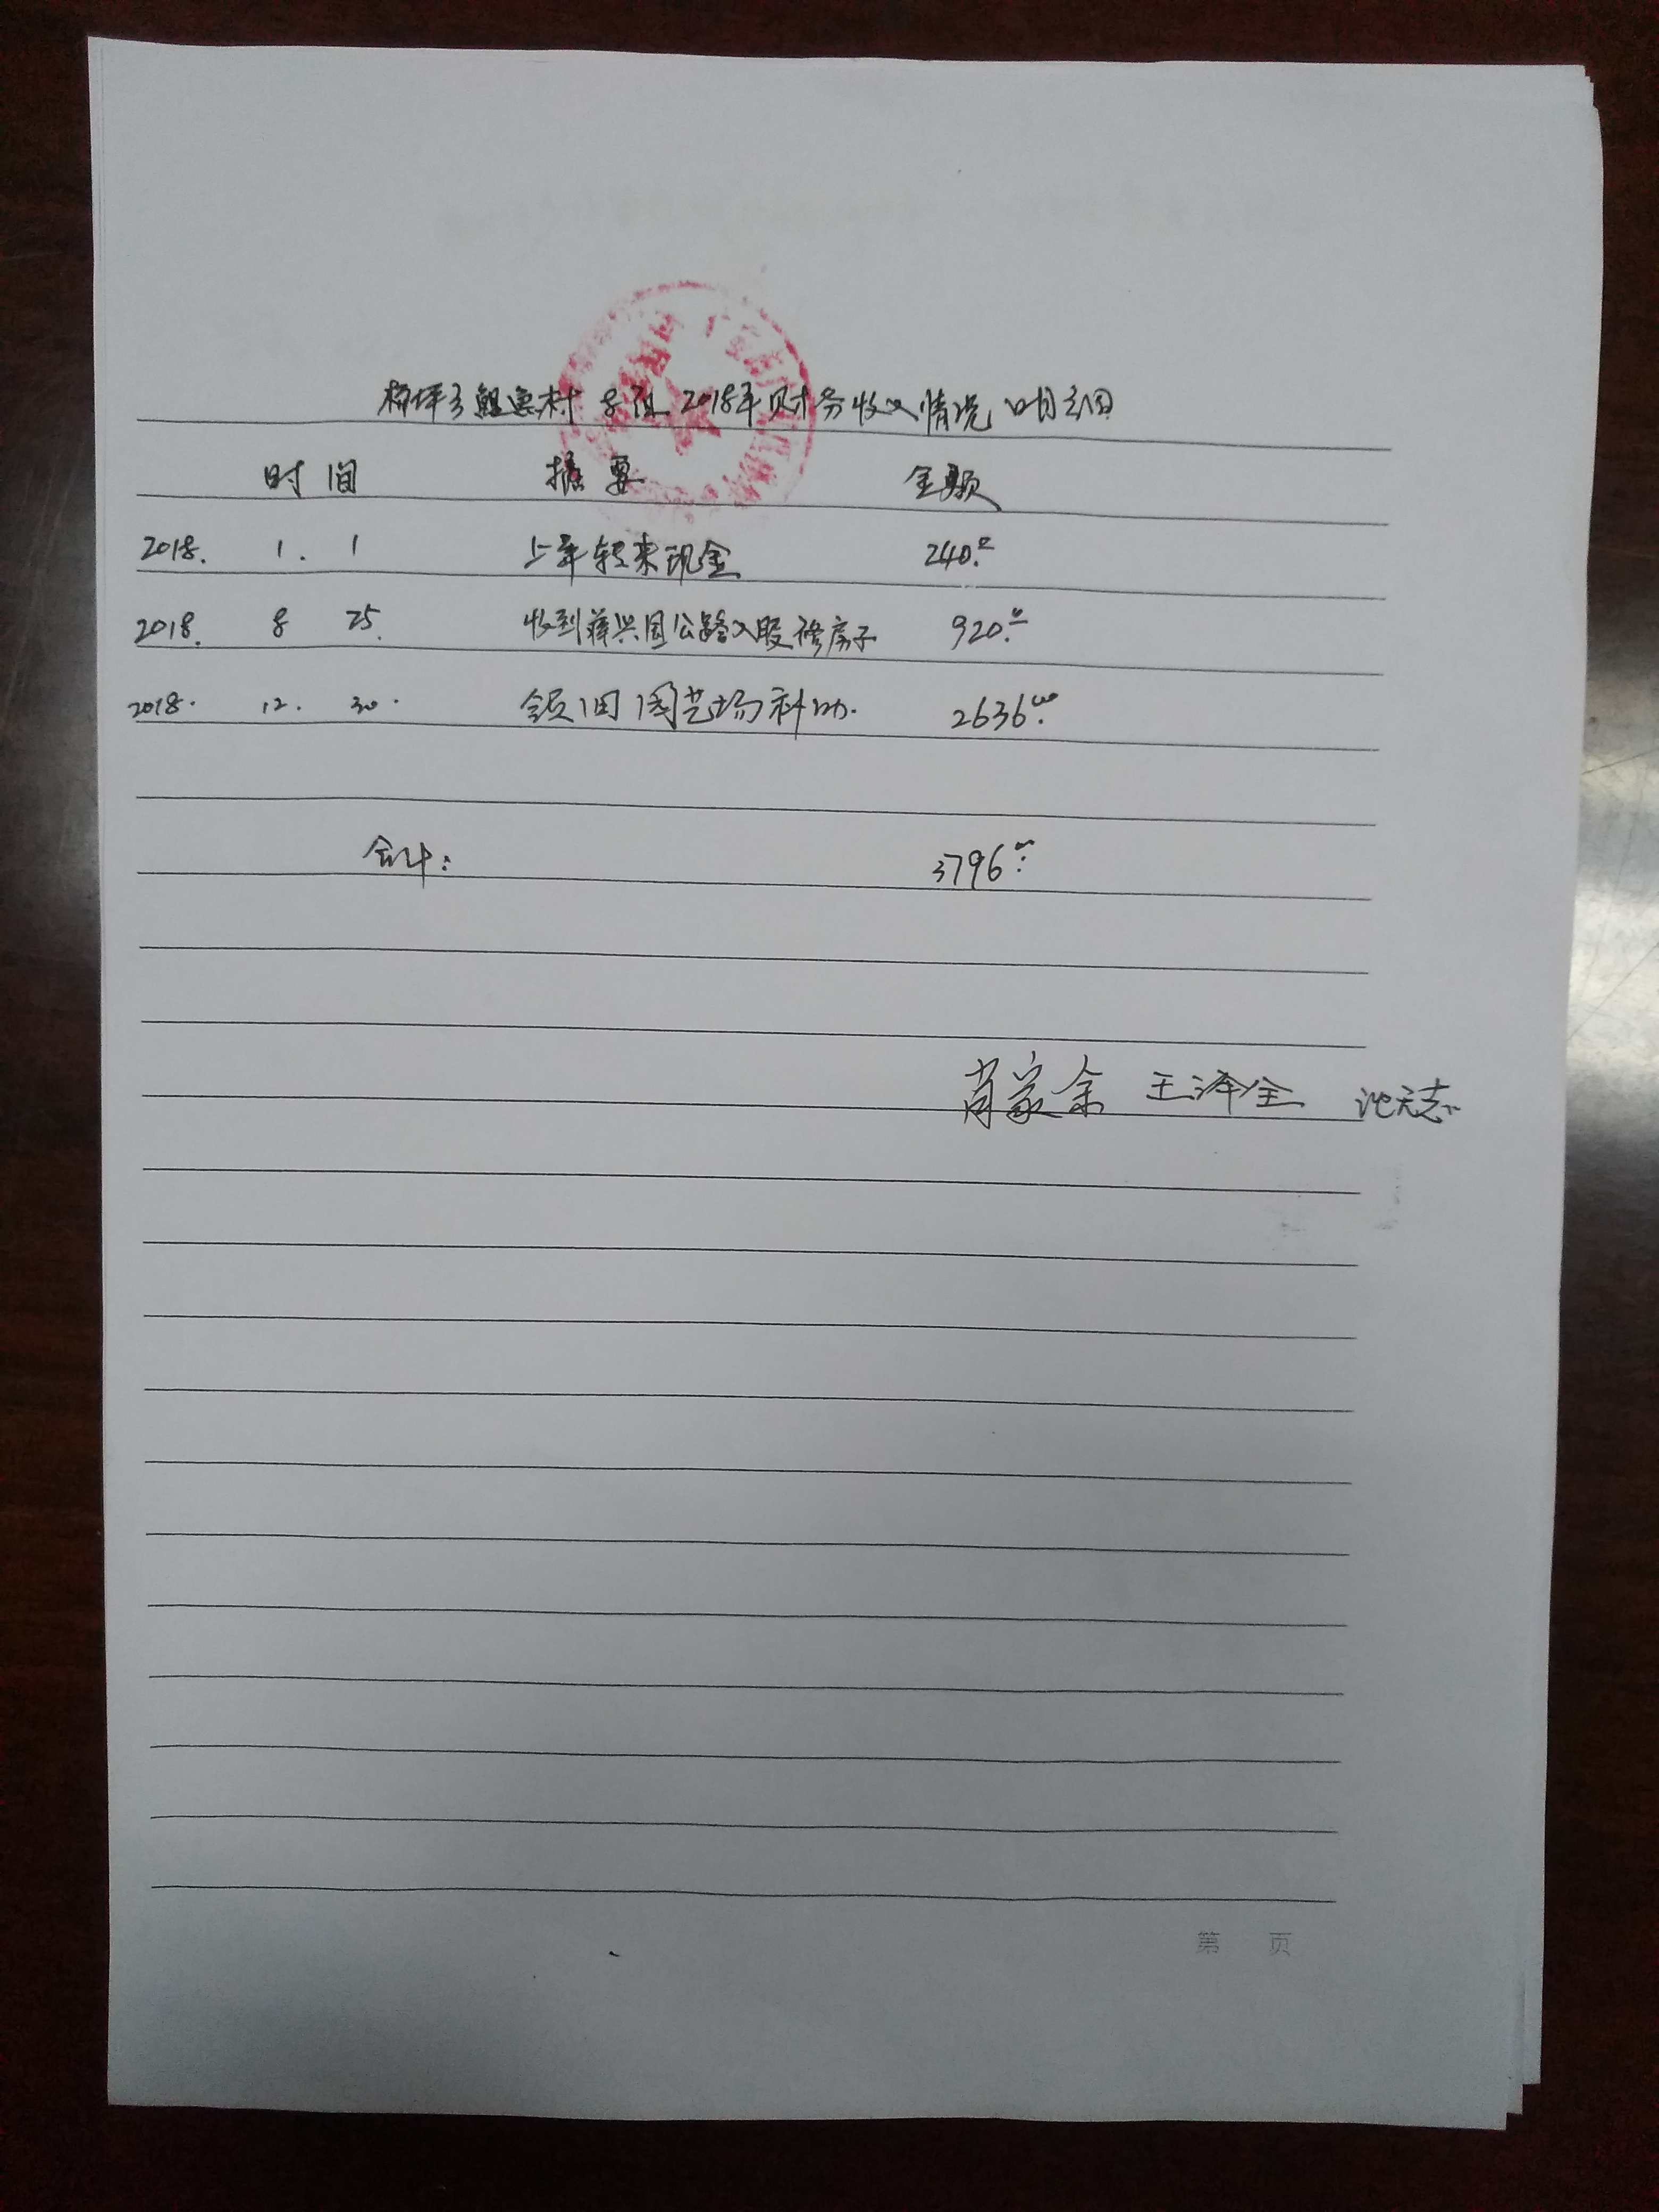 杨坪乡鲤鱼村 8组 2018年财务收入情况明细
时间 摘要 金额
2018. 1. 1 上年转来现金 240.00
2018. 8 25. 收到蒋兴国公路入股修房子 920.00
2018. 12. 30. 领旧园艺场补助. 2636.00
合计: 3796.00
肖家余 王泽全 沈天志
第 页